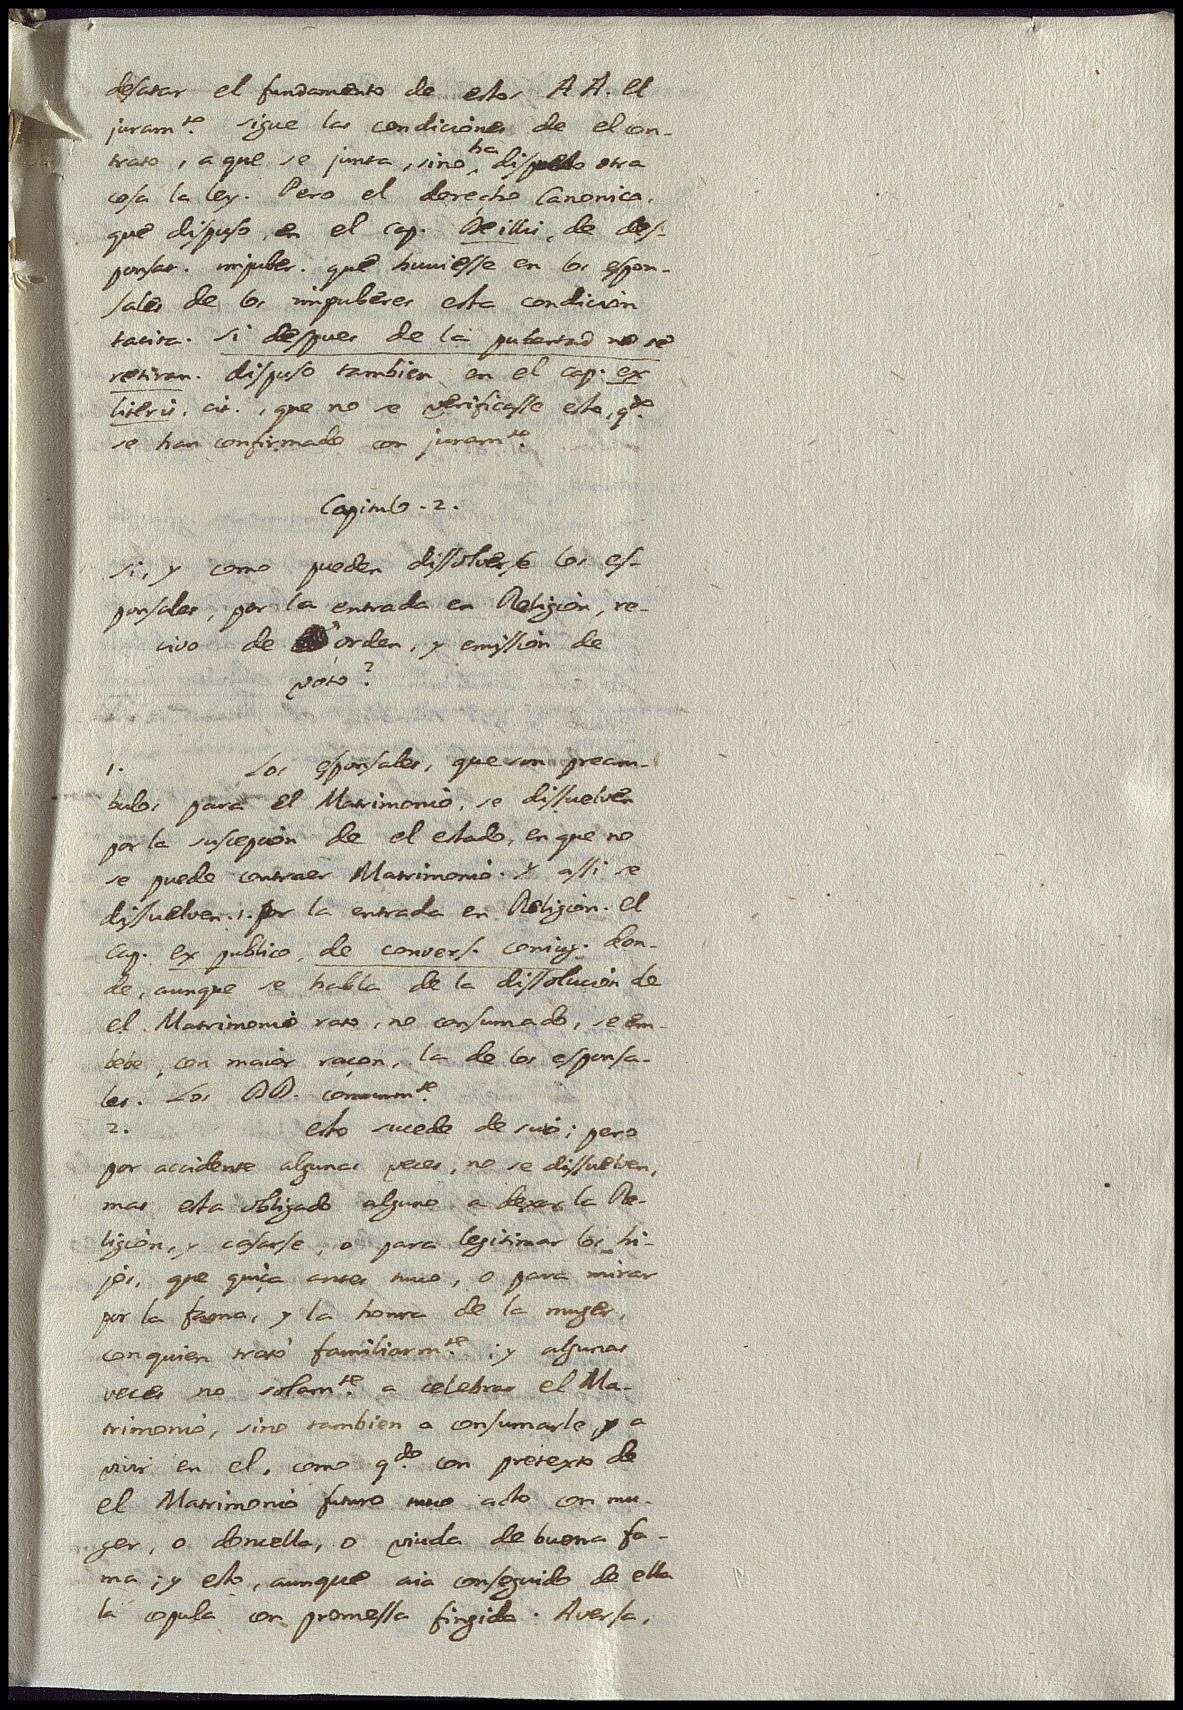 desatar el fundamento de estos AA. el
juram.to sigue las condiciones de el con-
trato, a que se junta, sino ha dispuesto otra
cosa la ley. Pero el derecho Canonico,
que dispuso en el cap. De illis, de des-
ponsat. impuber. que huuiesse en los espon-
sales de los impuberes esta condicion
tacita. si despues de la pubertad no se
retiran. dispuso tambien en el cap. ex
literis, cit., que no se verificasse esto, q.do
se han confirmado con juram.to
Capitulo. 2.
Si, y como pueden dissolverse los es-
ponsales, por la entrada en Religion, re-
civo de orden, y emission de
voto?
1. Los esponsales, que son pream-
bulos para el Matrimonio, se dissuelven
por la suscepcion de el estado, en que no
se puede contraer Matrimonio. Y assi se
dissuelven. 1. por la entrada en Religion. el
cap. ex publico, de convers. coniug. don-
de, aunque se habla de la dissolucion de
el Matrimonio rato, no consumado, se em-
bebe, con maior raçon, la de los esponsa-
les. Los DD. comunm.te
2. esto sucede de suio; pero
por accidente algunas veces, no se dissuelven,
mas esta obligado alguno a dexar la Re-
ligion, y casarse, o para legitimar los hi-
jos, que quiça antes tuuo, o para mirar
por la fama, y la honra de la muger,
con quien trató familiarm.te; y algunas
veces no solam.te a celebrar el Ma-
trimonio, sino tambien a consumarle, y a
vivir en el, como q.do con pretexto de
el Matrimonio futuro tuuo acto con mu-
ger, o doncella, o viuda de buena fa-
ma; y esto, aunque aia conseguido de ella
la copula con promessa fingida. Aversa,